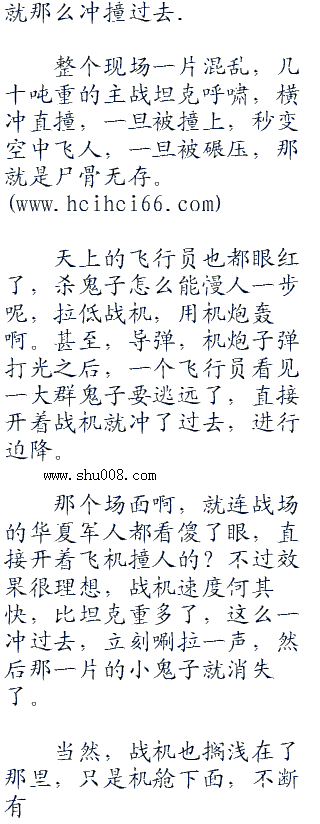 就那么冲撞过去.
整个现场一片混乱，几
十吨重的主战坦克呼啸，横
冲直撞，一旦被撞上，秒变
空中飞人，一旦被碾压，那
就是尸骨无存。
(www.hcihci66.com)
天上的飞行员也都眼红
了，杀鬼子怎么能慢人一步
呢，拉低战机，用机炮轰
啊。甚至，导弹，机炮子弹
打光之后，一个飞行员看见
一大群鬼子要逃远了，直接
开着战机就冲了过去，进行
迫降。
www.shu008.com
那个场面啊，就连战场
的华夏军人都看傻了眼，直
接开着飞机撞人的？不过效
果很理想，战机速度何其
快，比坦克重多了，这么一
冲过去，立刻唰拉一声，然
后那一片的小鬼子就消失
了。
当然，战机也搁浅在了
那里，只是机舱下面，不断
有